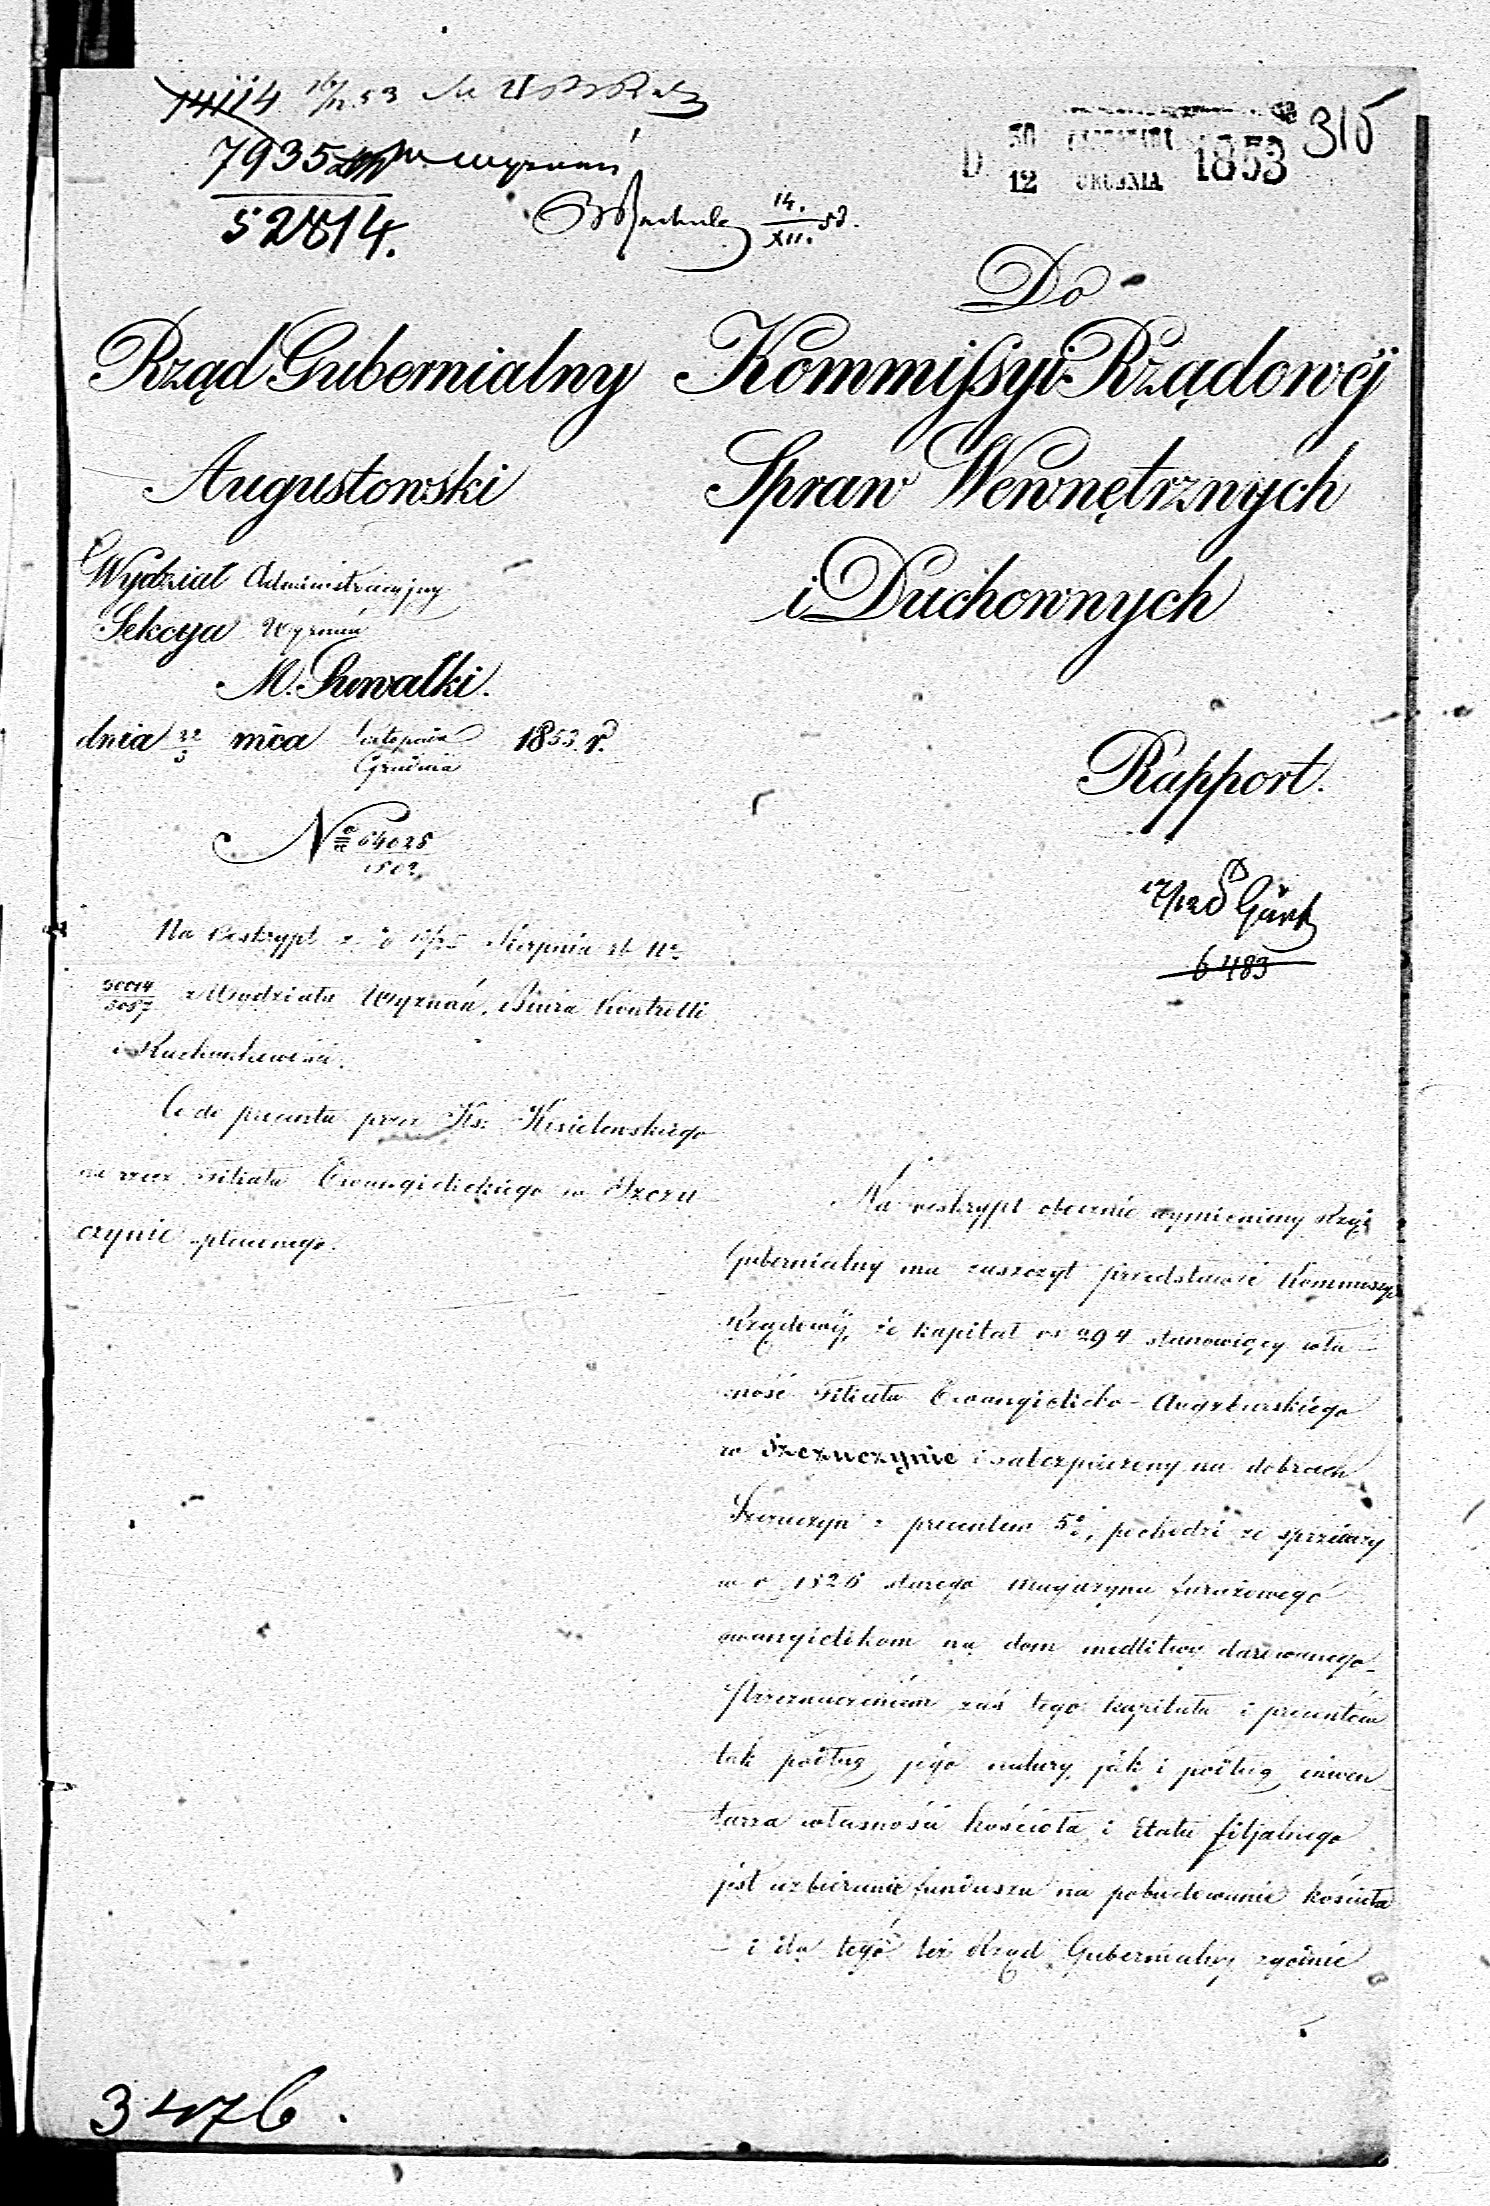 14114 16/12 53
315
D 30 LISTOPADA 1853
12 GRUDNIA
7935 Wyznań
52814.
14.
XII. 53.
Rząd Gubernialny
Augustowski
Wydział Administracyjny
Sekcya Wyznań
M. Suwałki.
dnia 22 mca Listopada 1853 r.
3 Grudnia
No 64028
1502.
Na reskrypt z d 13/25 Sierpnia rb No
30014 z Wydziału Wyznań, Biura Kontrolli
3057
i Rachunkowości.
Co do procentu przez Ks: Kisielewskiego
na rzecz Filiału Ewangielickiego w Szczu
czynie płaconego.
Do
Kommissyi Rządowéj
Spraw Wewnętrznych
i Duchownych
Rapport.
17/12
6483
Na reskrypt obocznie wymieniony Rząd
Gubernialny ma zaszczyt przedstawić Kommissyi
Rządowéj, że kapitał rs 294 stanowiący wła
sność Filiału Ewangielicko-Augsburskiego
w Szczuczynie i zabezpieczony na dobrach
Szczuczyn z procentem 5%, pochodzi ze sprzedaży
w r. 1826 starego magazynu furażowego
ewangielikom na dom modlitwy darowanego.
Przeznaczeniem zaś tego kapitału i procentów
tak podług jego natury, jak i podług inwen
tarza własności kościoła i Etatu filjalnego
jest uzbieranie funduszu na pobudowanie kościoła
- i dla tego też Rząd Gubernialny zgodnie
3476.